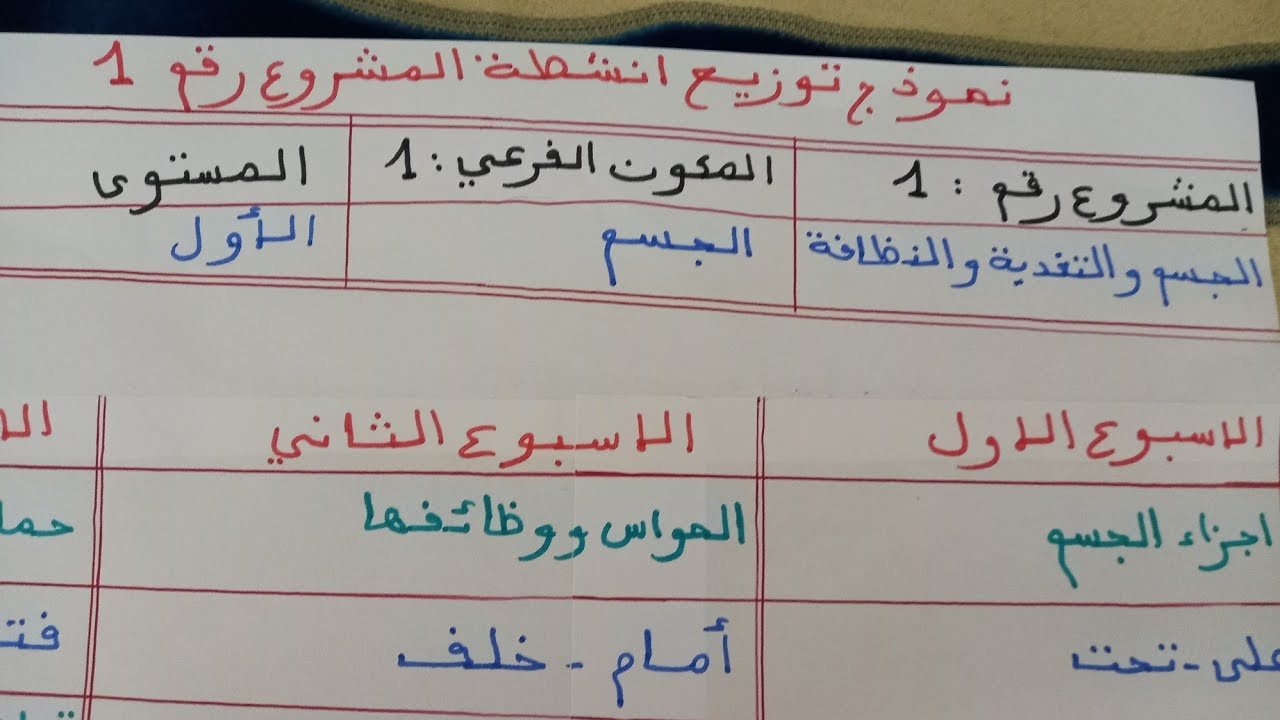 نموذج توزيع انشطة المشروع رقم 1
المشروع رقم : 1 المكون الفرعي : 1 المستوى
الجسم والتغدية والنظافة الجسم الأول
الاسبوع الاول الاسبوع الثاني
اجزاء الجسم الحواس ووظائفها
على - تحت أمام - خلف